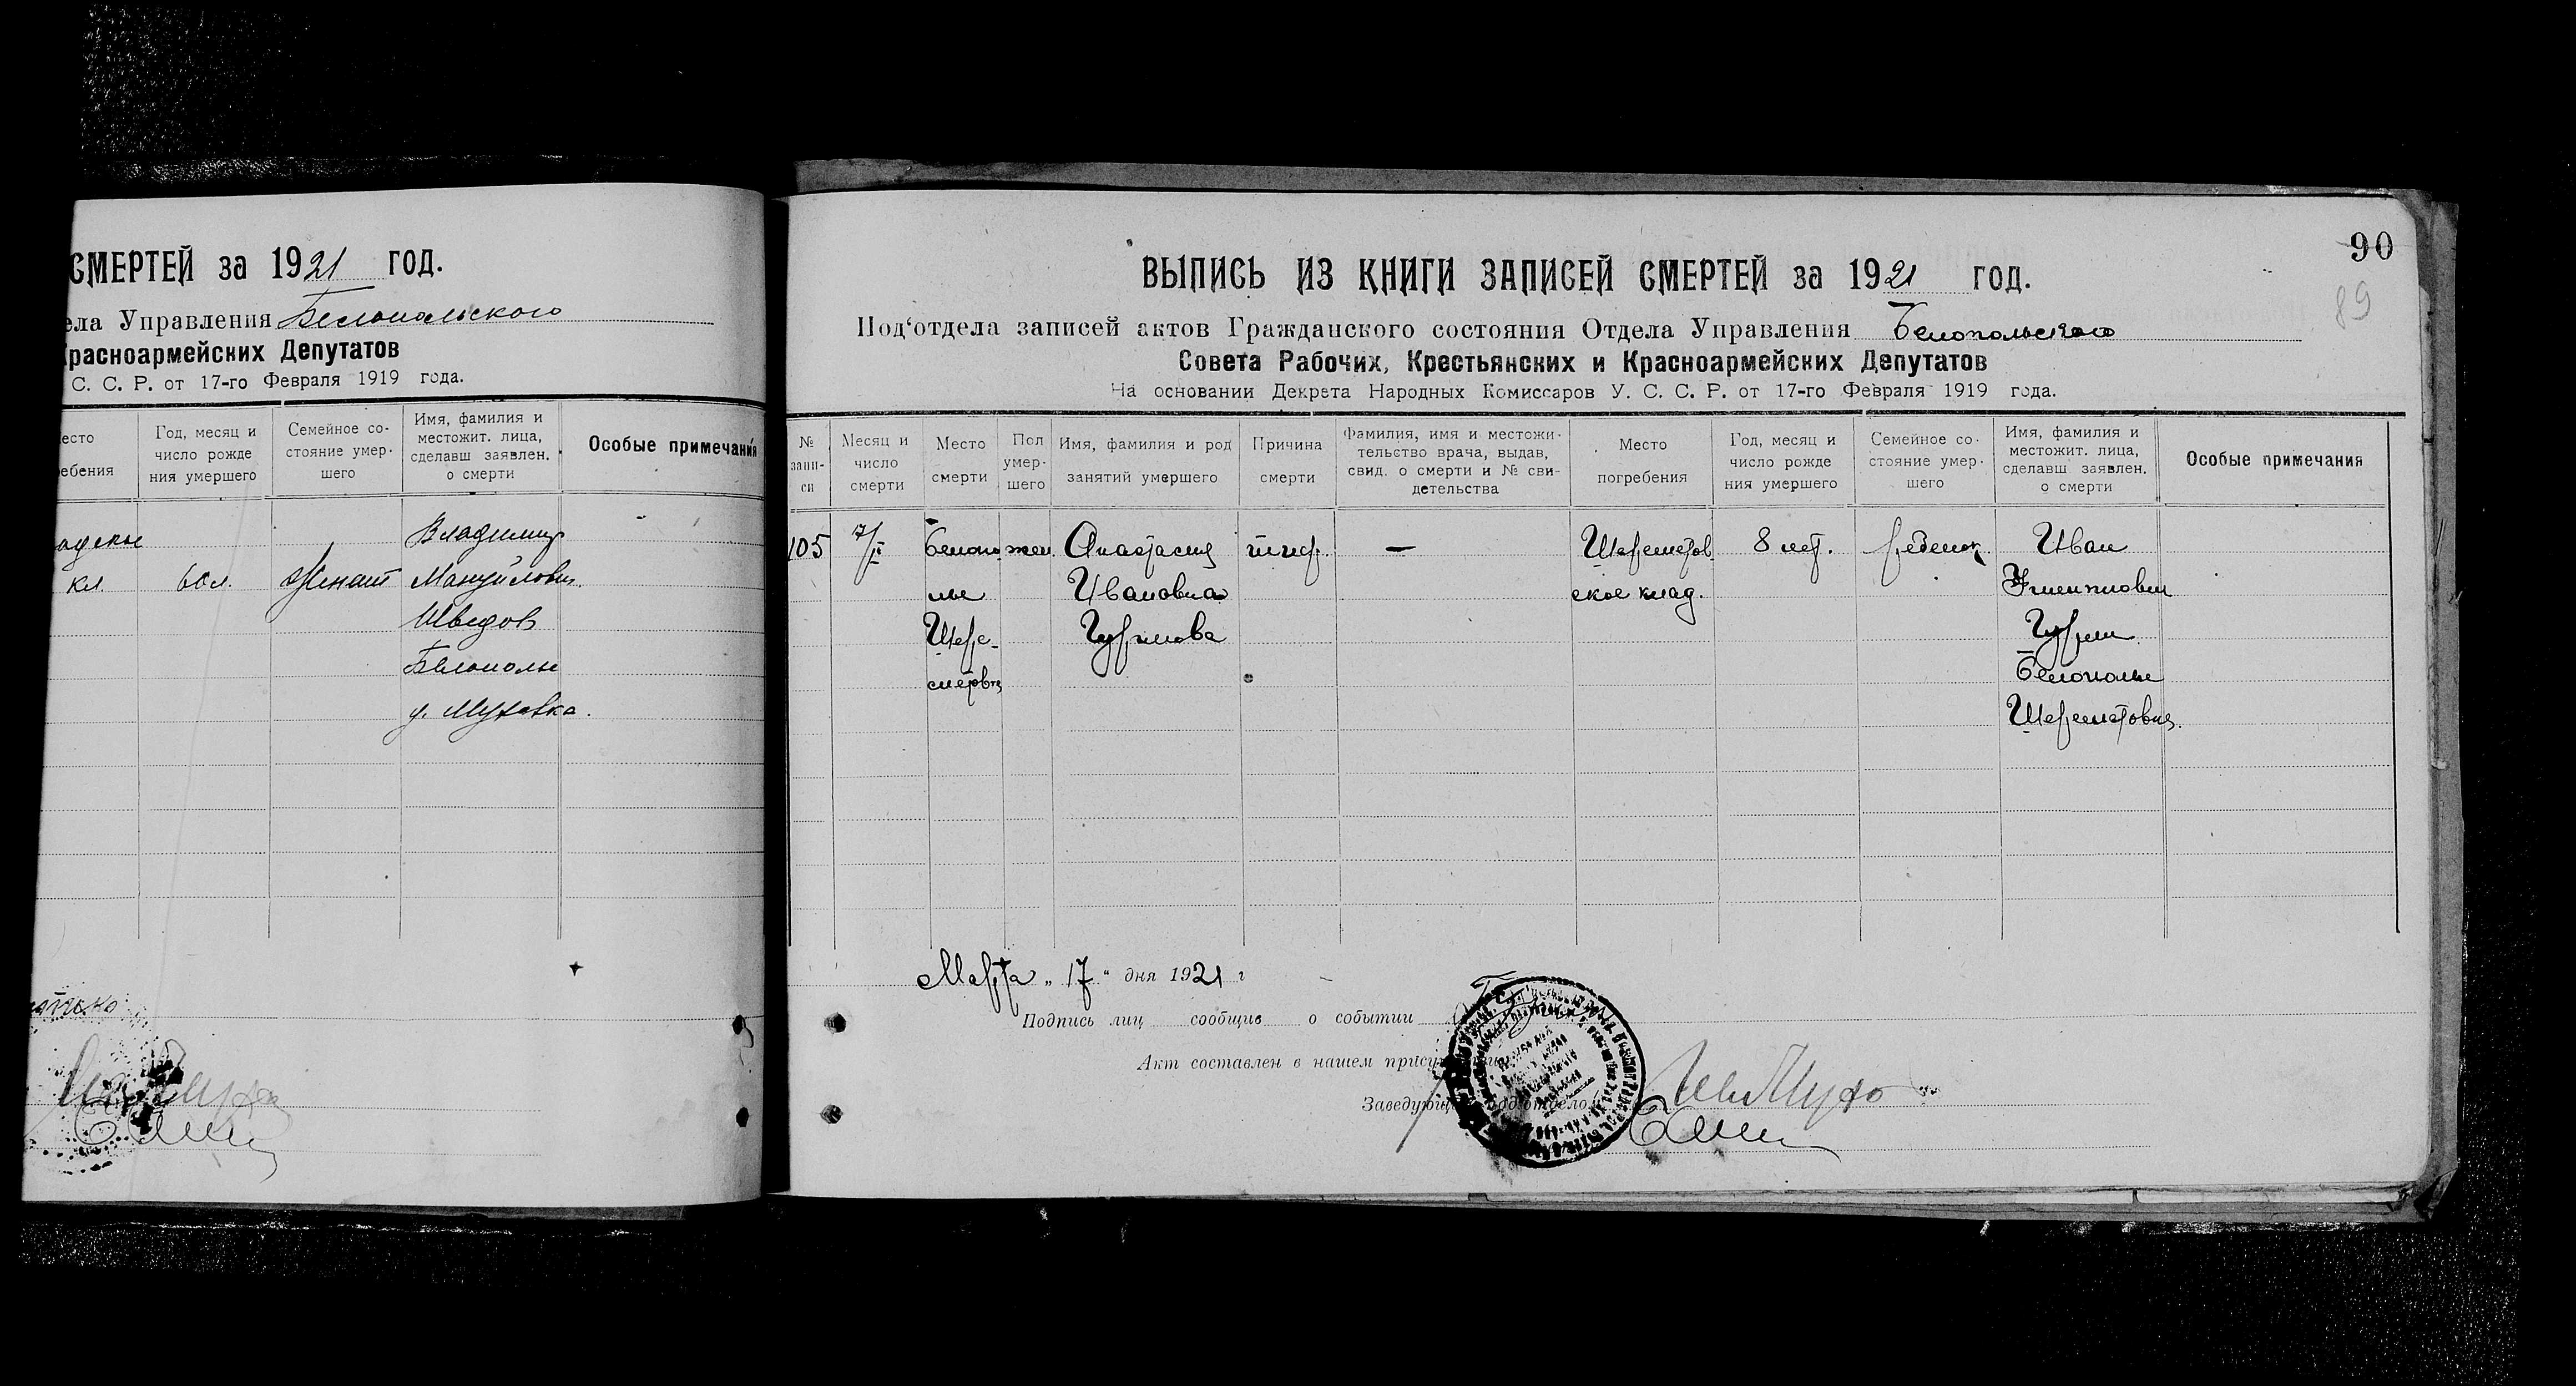 СМЕРТЕЙ за 1921 ГОД.
ела Управления Белопольского
Красноармейских Депутатов
С. С. Р. от 17-го Февраля 1919 года.
есто
ебения
Год, месяц и
число рожде
ния умершего
Семейное со-
стояние умер-
шего
Имя, фамилия и
местожит. лица,
сделавш заявлен.
о смерти
Особые примечания
кл.
60 л.
Женат
Владимир
Мануйлович
Шведов
Белополье
90
89
ВЫПИСЬ ИЗ КНИГИ ЗАПИСЕЙ СМЕРТЕЙ за 1921 ГОД.
Под‘отдела записей актов Гражданского состояния Отдела Управления Белопольского
Совета Рабочих, Крестьянских и Красноармейских Депутатов
На основании Декрета Народных Комиссаров У. С. С. Р. от 17-го Февраля 1919 года.
№
запи-
си
Месяц и
число
смерти
Место
смерти
Пол
умер-
шего
Имя, фамилия и род
занятий умершего
Причина
смерти
Фамилия, имя и местожи-
тельство врача, выдав,
свид. о смерти и № сви-
детельства
Место
погребения
Год, месяц и
число рожде
ния умершего
Семейное со-
стояние умер-
шего
Имя, фамилия и
местожит. лица,
сделавш заявлен.
о смерти
Особые примечания
105
Белопо
лье
Шере-
метовка
жен.
Анастасия
Ивановна
тиф.
—
Шереметов
ское клад.
8 лет.
ребенок.
Иван
Белополье
Марта „ 17 “ дня 1921 г
Подпись лиц сообщив о событии
Акт составлен в нашем